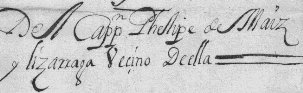 Del Capp.n Phelipe de Maiz
y lizarraga Vecino Deella